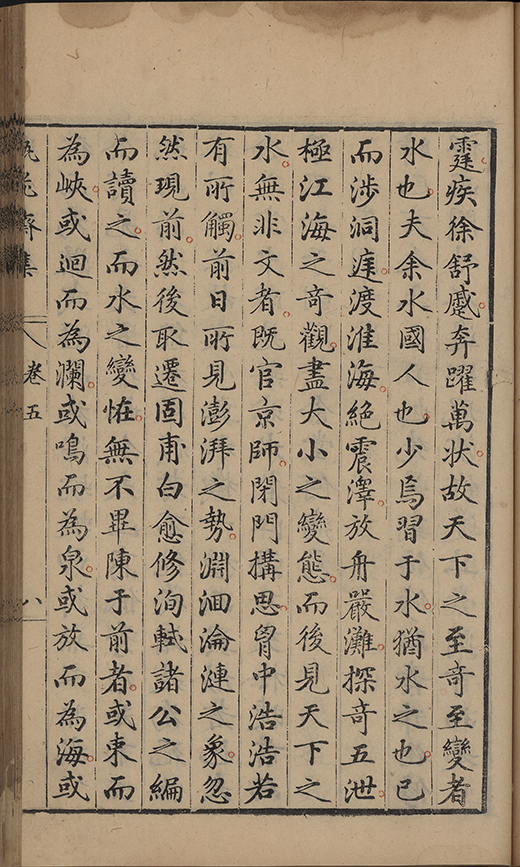 霆疾徐舒蹙奔躍萬狀故天下之至奇至變者
水也夫余水國人也少焉習于水猶水之也已
而涉洞庭渡淮海絕震澤放舟嚴灘探奇五泄
極江海之奇觀盡大小之變態而後見天下之
水無非文者既官京師閉門搆思胷中浩浩若
有所觸前日所見澎湃之勢淵洄淪漣之象忽
然現前然後取遷固甫白愈修洵軾諸公之編
而讀之而水之變恠無不畢陳于前者或束而
為峽或迴而為瀾或鳴而為泉或放而為海或
集
卷五
八